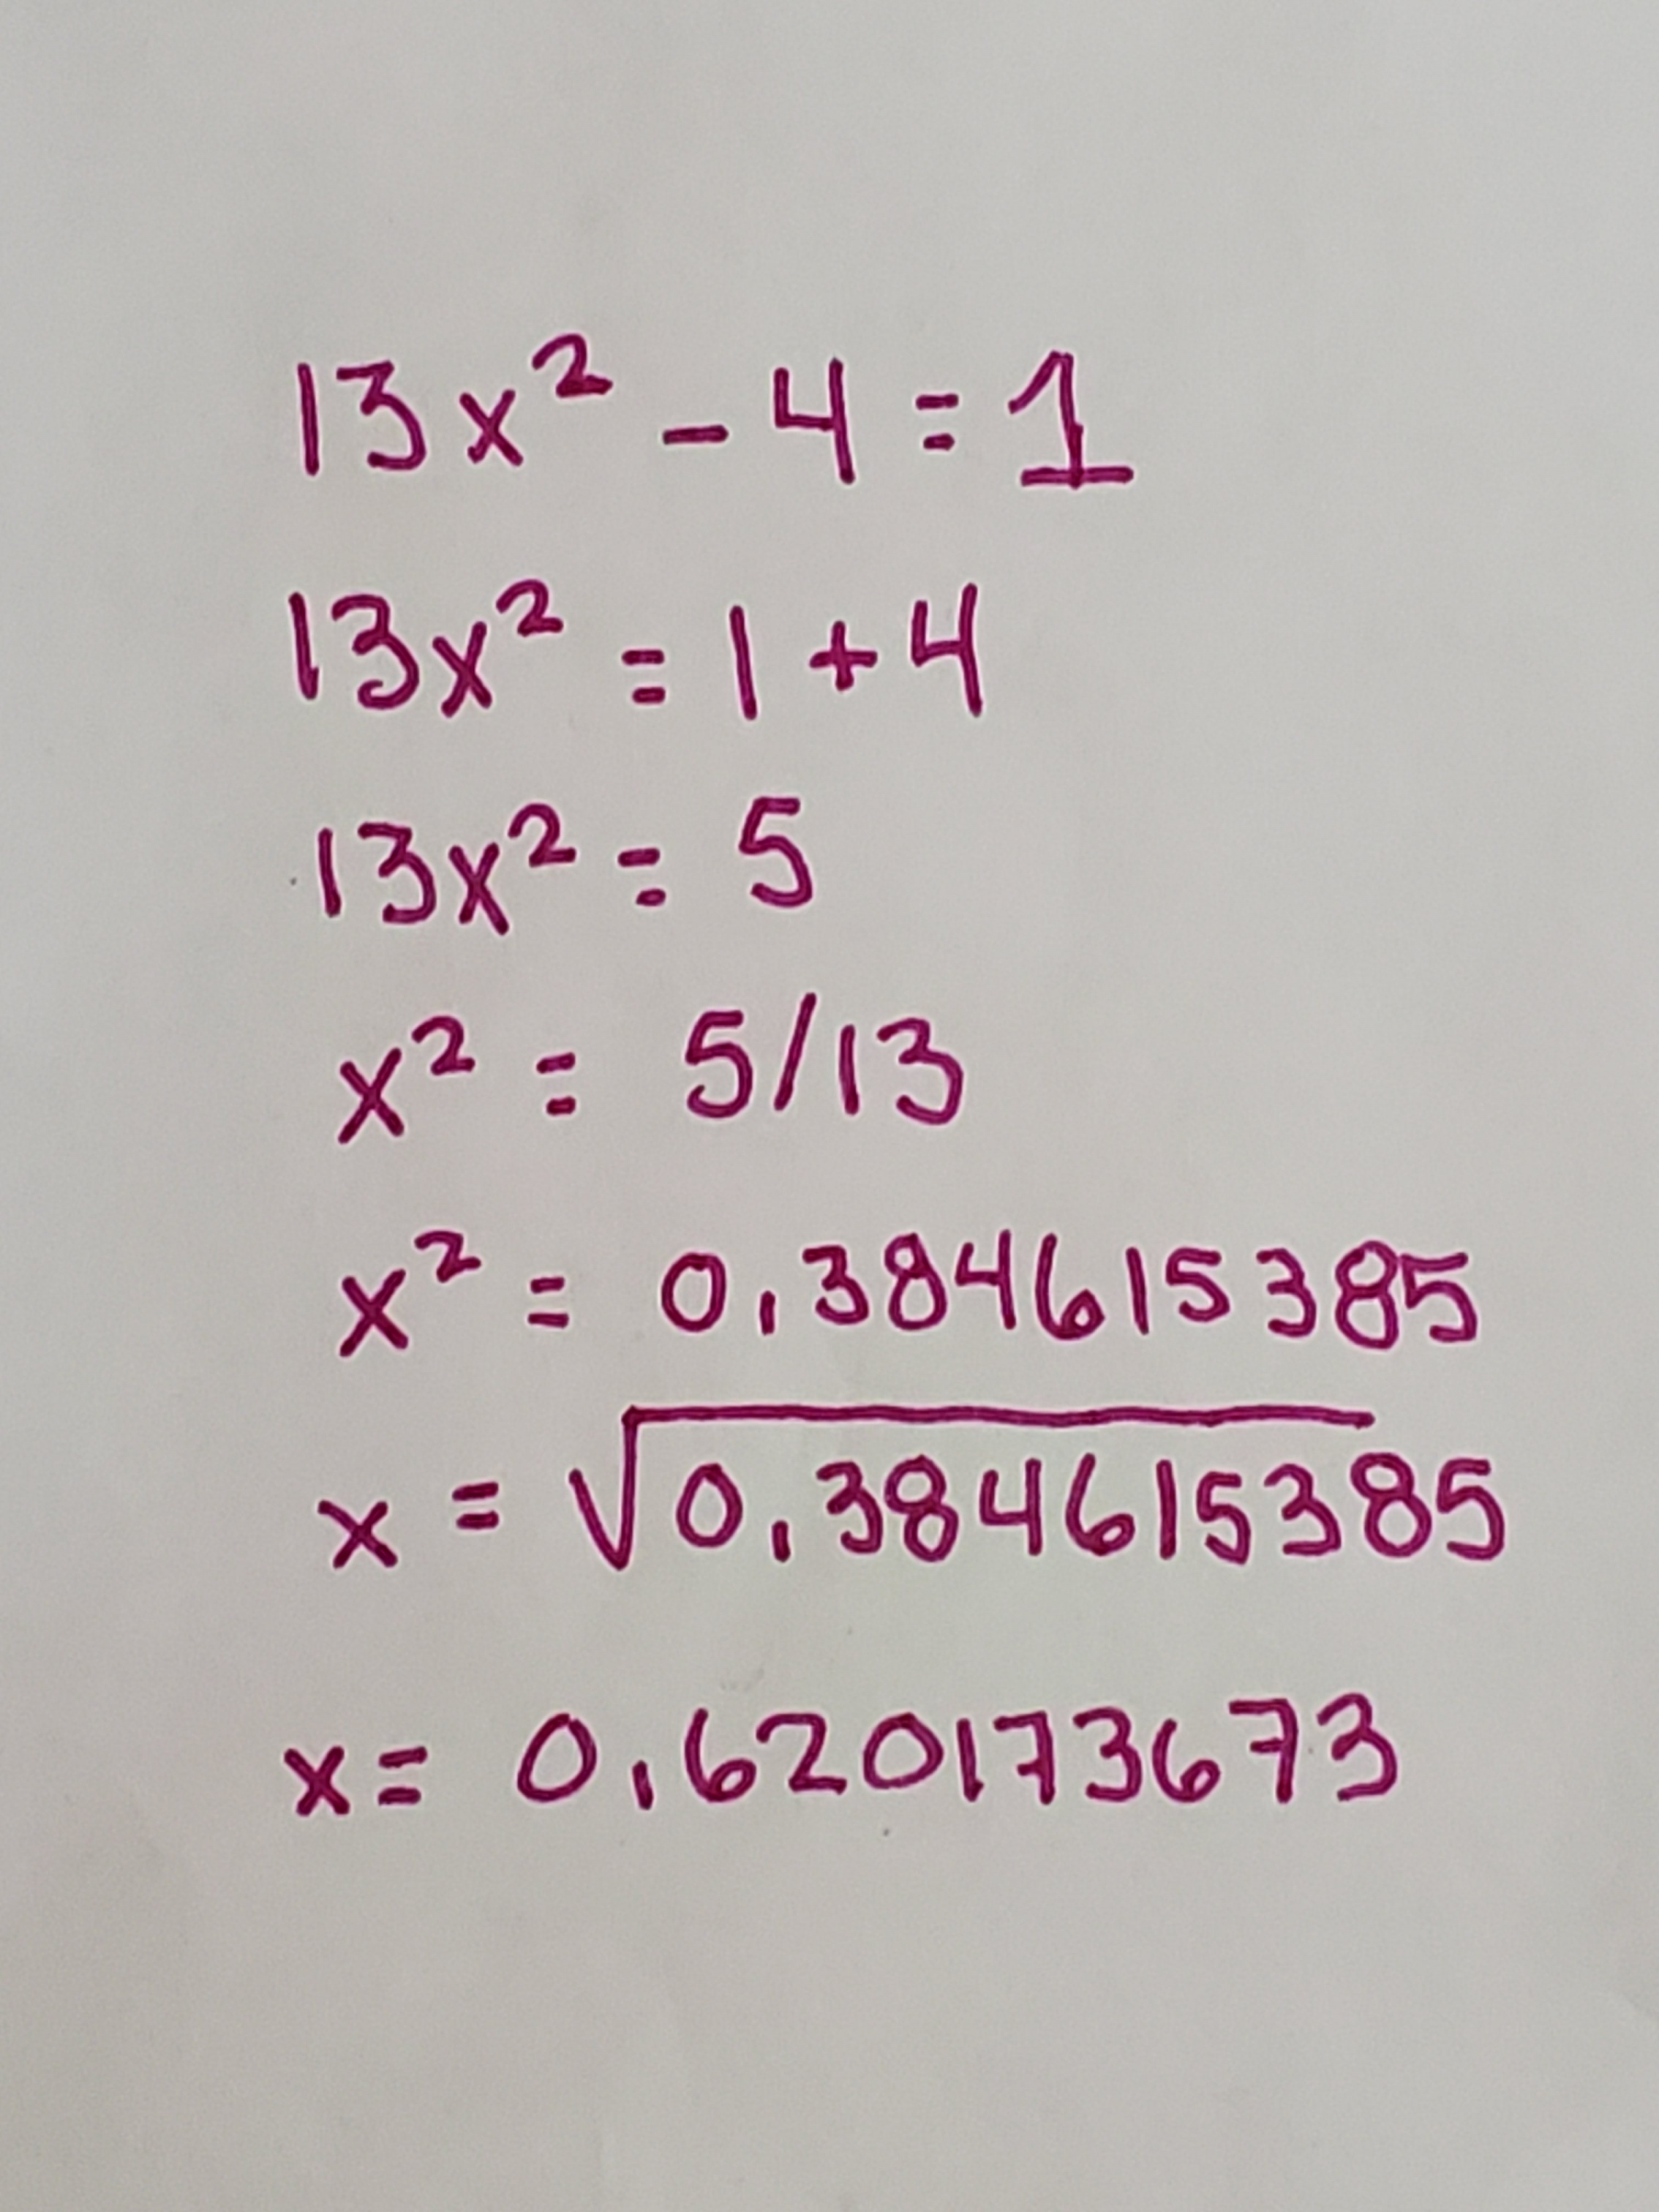 13x² - 4 = 1
13x² = 1 + 4
13x² = 5
x² = 5/13
x² = 0.384615385
x = √0.384615385
x = 0.620173673